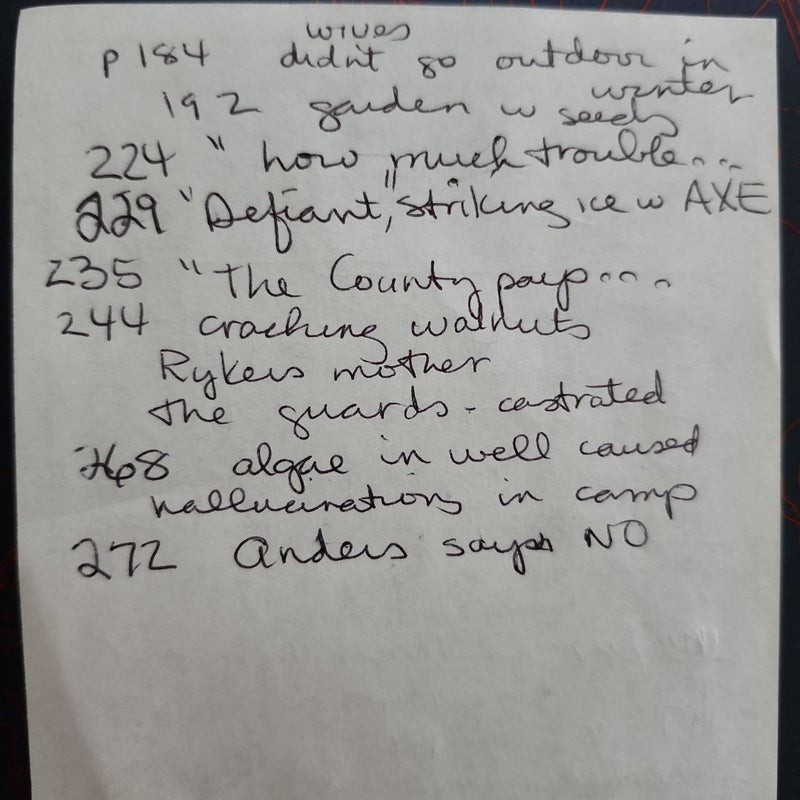 wives
p 184 didn't go outdoor in
winter
192 garden w seeds
224 " how much trouble...
229 "Defiant," striking ice w AXE
235 "The County pays...
244 cracking walnuts
Rykers mother
the guards - castrated
268 algae in well caused
hallucinations in camp
272 Anders says NO